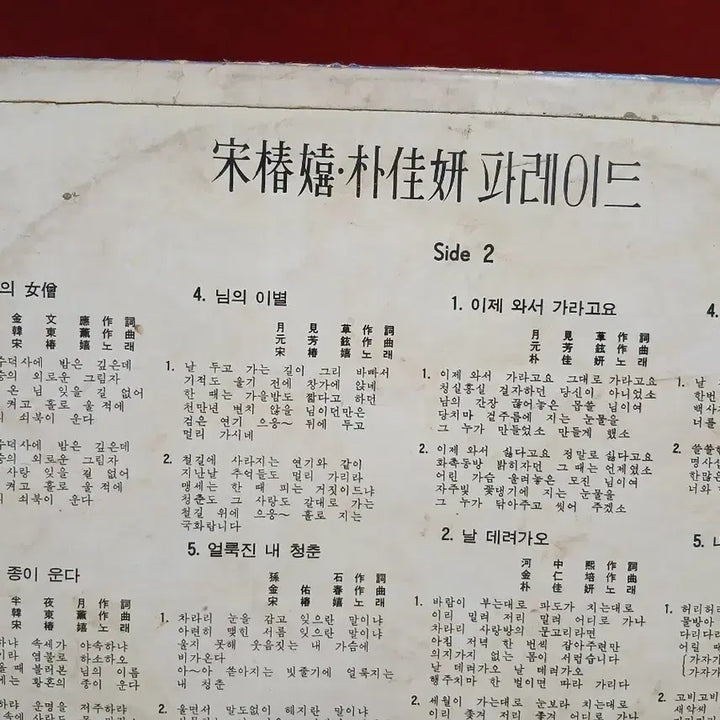 宋椿嬉·朴佳妍 파레이드
의 女僧
金文應 作詞
韓東薰 作曲
宋椿嬉 노래
수덕사에 밤은 깊은데
승의 외로운 그림자
온 님 잊을 길 없어
켜고 홀로 울 적에
쇠북이 운다
수덕사에 밤은 깊은데
승의 외로운 그림자
사랑 잊을 길 없어
켜고 홀로 울 적에
쇠북이 운다
종이 운다
半夜月 作詞
韓東薰 作曲
宋椿嬉 노래
하냐 속세가 야속하냐
이라 염불로 하소하오
울 때 불러본 님의 이름
에는 황혼의 종이 운다
하랴 운명을 저주하랴
4. 님의 이별
月見草 作詞
元芳鉉 作曲
宋椿嬉 노래
1. 날 두고 가는 길이 그리 바빠서
기적도 울기 전에 창가에 앉네
한 때는 가을밤도 짧다고 하던
천만년 변치 않을 님이런만은
검은 연기 으응~ 뒤에 두고
멀리 가시네
2. 철길에 사라지는 연기와 같이
지난날 추억들도 멀리 가리라
맹세는 한 때 피는 거짓이드냐
청춘도 그 사랑도 갈대로 가는
철길 위에 으응~ 홀로 지는
국화랍니다
5. 얼룩진 내 청춘
孫石 作詞
金佑春 作曲
宋椿嬉 노래
1. 차라리 눈을 감고 잊으란 말이냐
아련히 맺힌 서름 잊으란 말이냐
울지 못해 웃음짓는 내 가슴에
비가온다
아~아 쏟아지는 빗줄기에 얼룩지는
내 청춘
2. 울면서 말도없이 헤지란 말이냐
Side 2
1. 이제 와서 가라고요
月見草 作詞
元芳鉉 作曲
朴佳妍 노래
1. 이제 와서 가라고요 그대로 가라고요
청실홍실 걸자하던 당신이 아니었소
님의 간장 끊어놓은 몹쓸 님이여
당치마 겉주름에 지는 눈물을
그 누가 만들었소 만들게 했소
2. 이제 와서 싫다고요 정말로 싫다고요
화촉동방 밝히자던 그 때는 언제였소
어린 가슴 울려놓은 모진 님이여
자주빛 꽃댕기에 지는 눈물을
그 누가 닦아주고 씻어 주겠소
2. 날 데려가오
河中熙 作詞
金仁培 作曲
朴佳妍 노래
1. 바람이 부는대로 파도가 치는대로
이리 밀려 저리 밀려 어디로 가나
차라리 사랑방의 문고리라면
아침 저녁 한 번씩 잡아주련만
의지가지 없는 몸이 서럽습니다
날 데려가오 날 데려가오
행주치마 한 벌이면 따라 가리다
2. 세월이 가는대로 눈보라 치는대로
이리 쫓겨 저리 쫓겨 어디로 가나
4.
1. 날
한번
백사
너를
2. 쓸쓸한
명사
한많은
너와
5. 나
1. 허리허리
물방아
다리다리
어릴 때
(가자가
가자가
2. 고비고비
새악씨